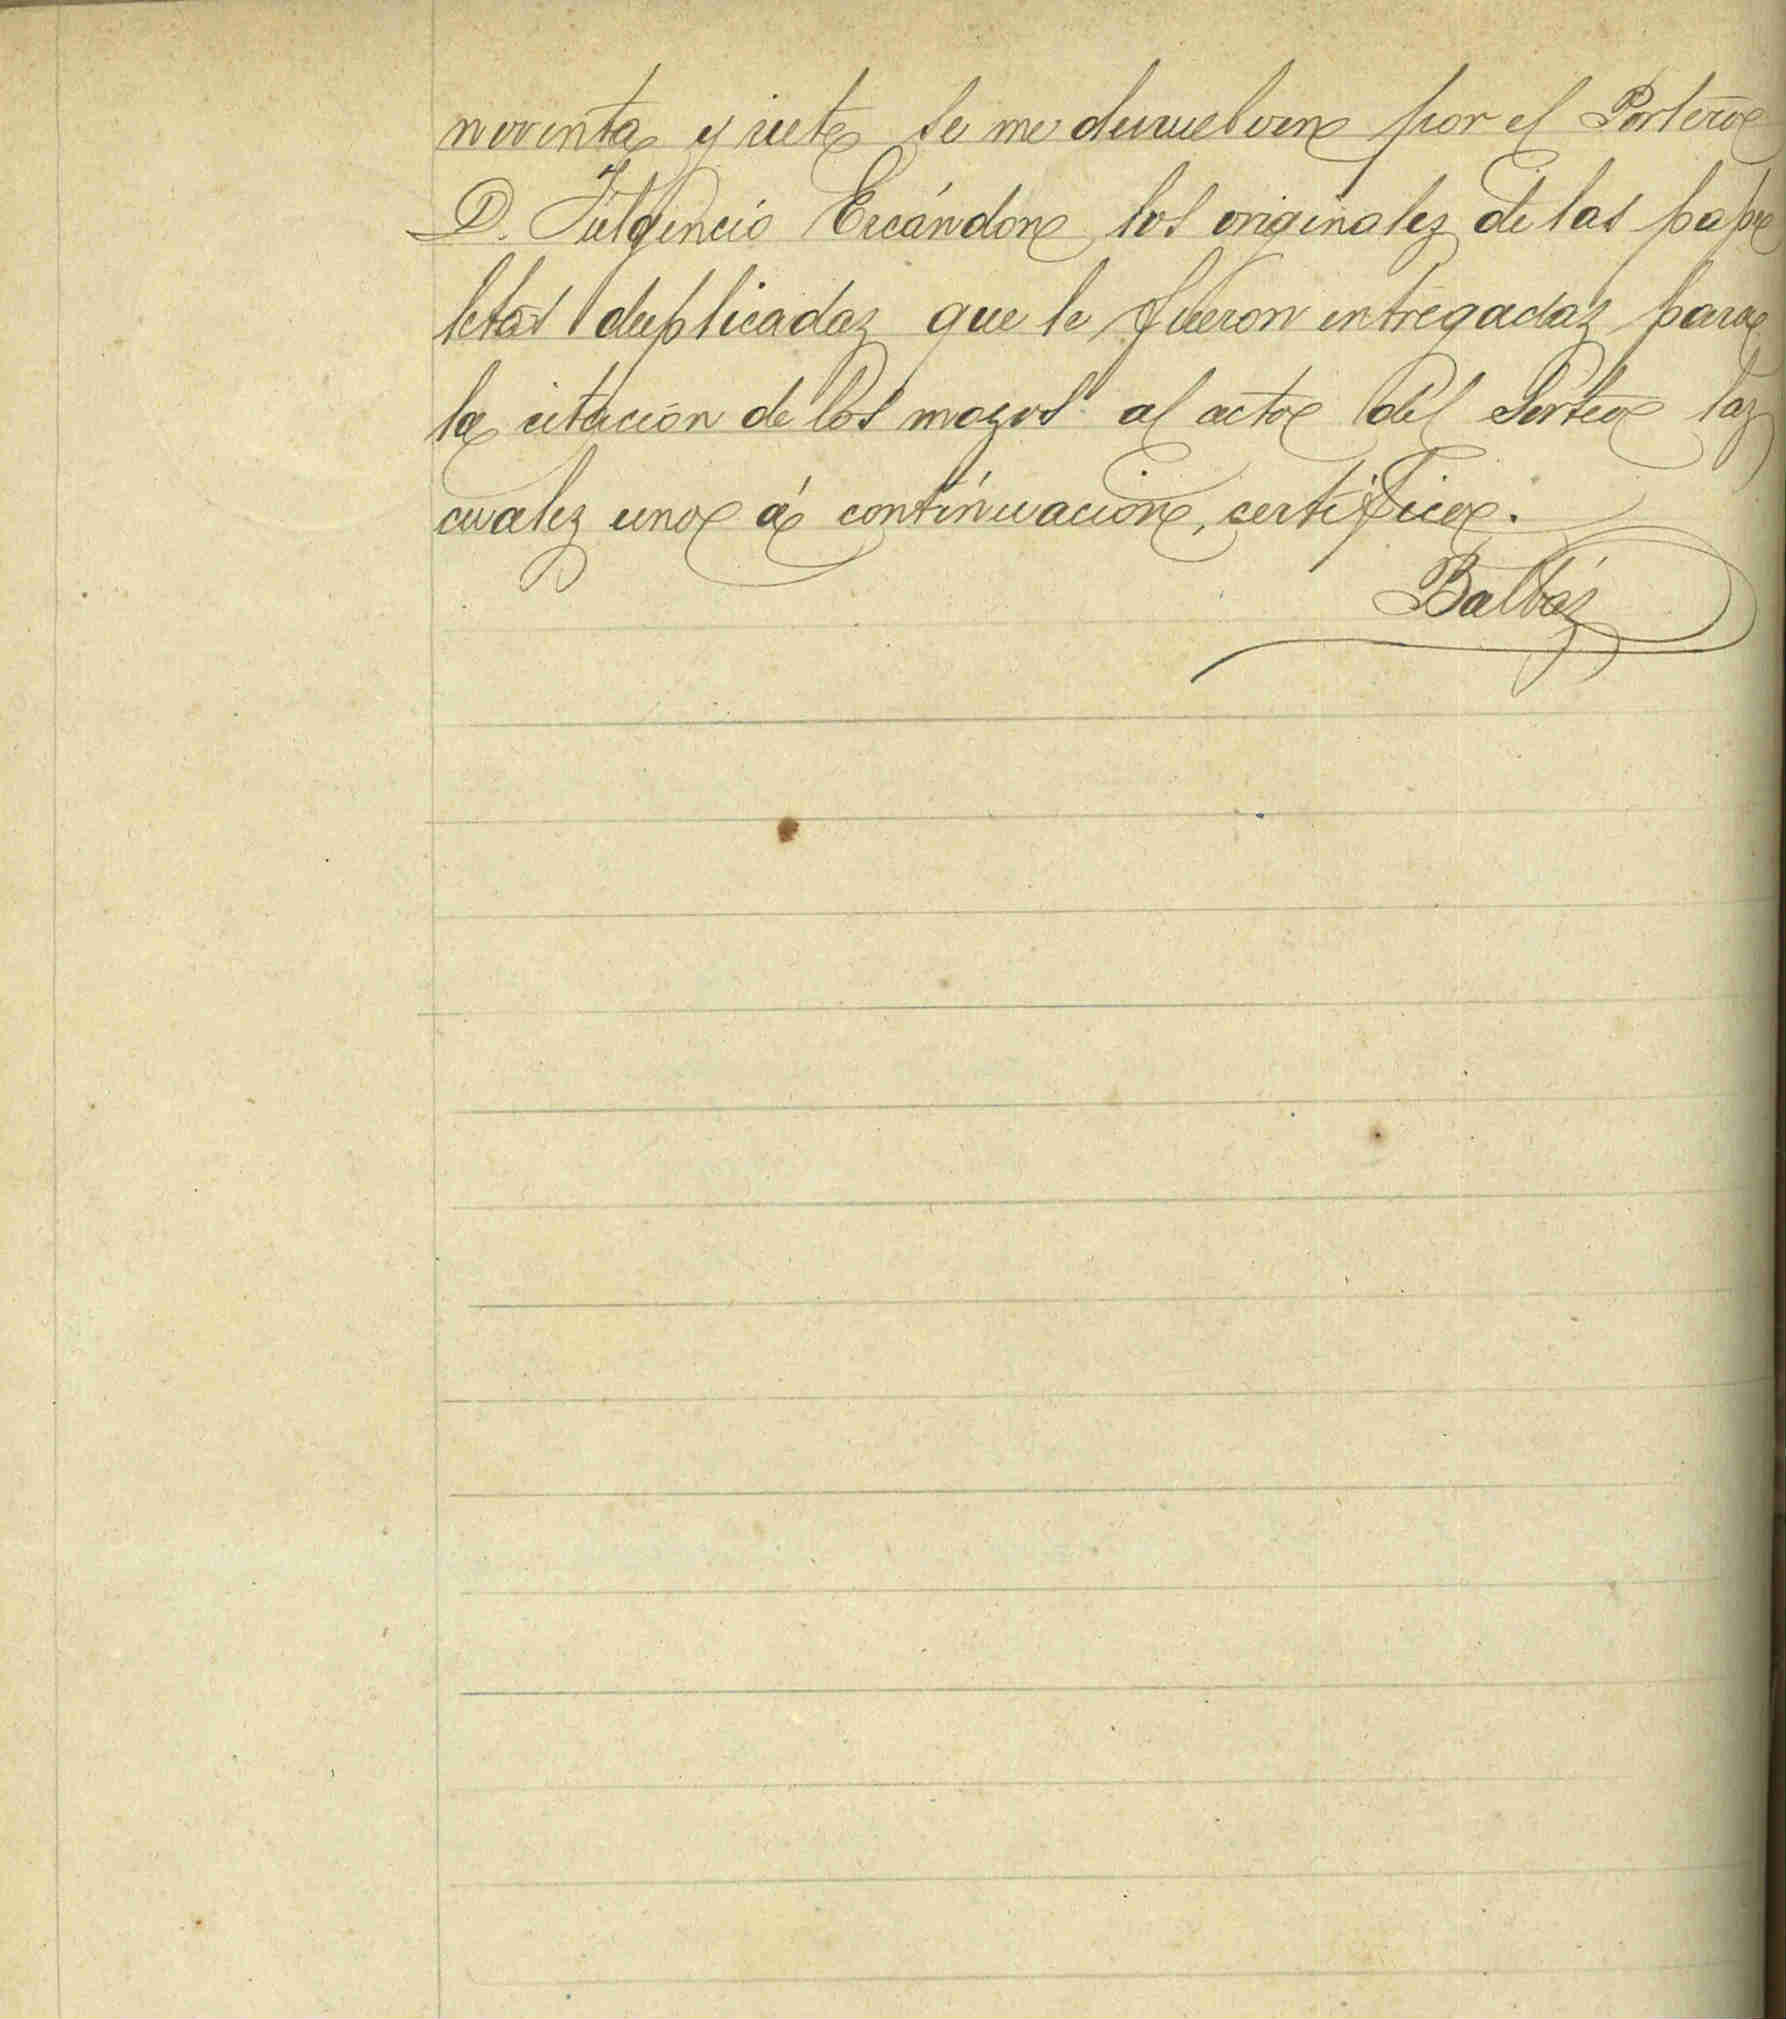 noventa y siete se me devuelven por el Portero
D. Fulgencio Escándon los originalez de las pape
letas duplicadaz que le fueron entregadaz para
la citacion de los mozos al acto del Sorteo laz
cualez uno á continuacion, certifico.
Balbás